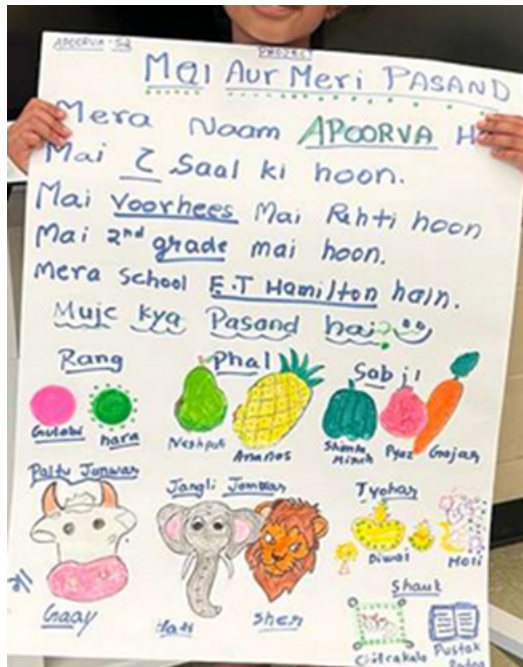 APOORVA - S2
PROJECT
Mai Aur Meri PASAND
Mera Naam APOORVA H
Mai 7 Saal ki hoon.
Mai Voorhees Mai Rehti hoon
Mai 2nd grade mai hoon.
Mera School E.T Hamilton hain.
Mujc kya Pasand hai?
Rang Phal Sabji
Gulabi hara Nashpati Ananas Shimla Mirch Pyaz Gajar
Paltu Janwar Jangli Janwar Tyohar
Diwali Holi
Shauk
Gaay Hati Sher
Chitrakala Pustak